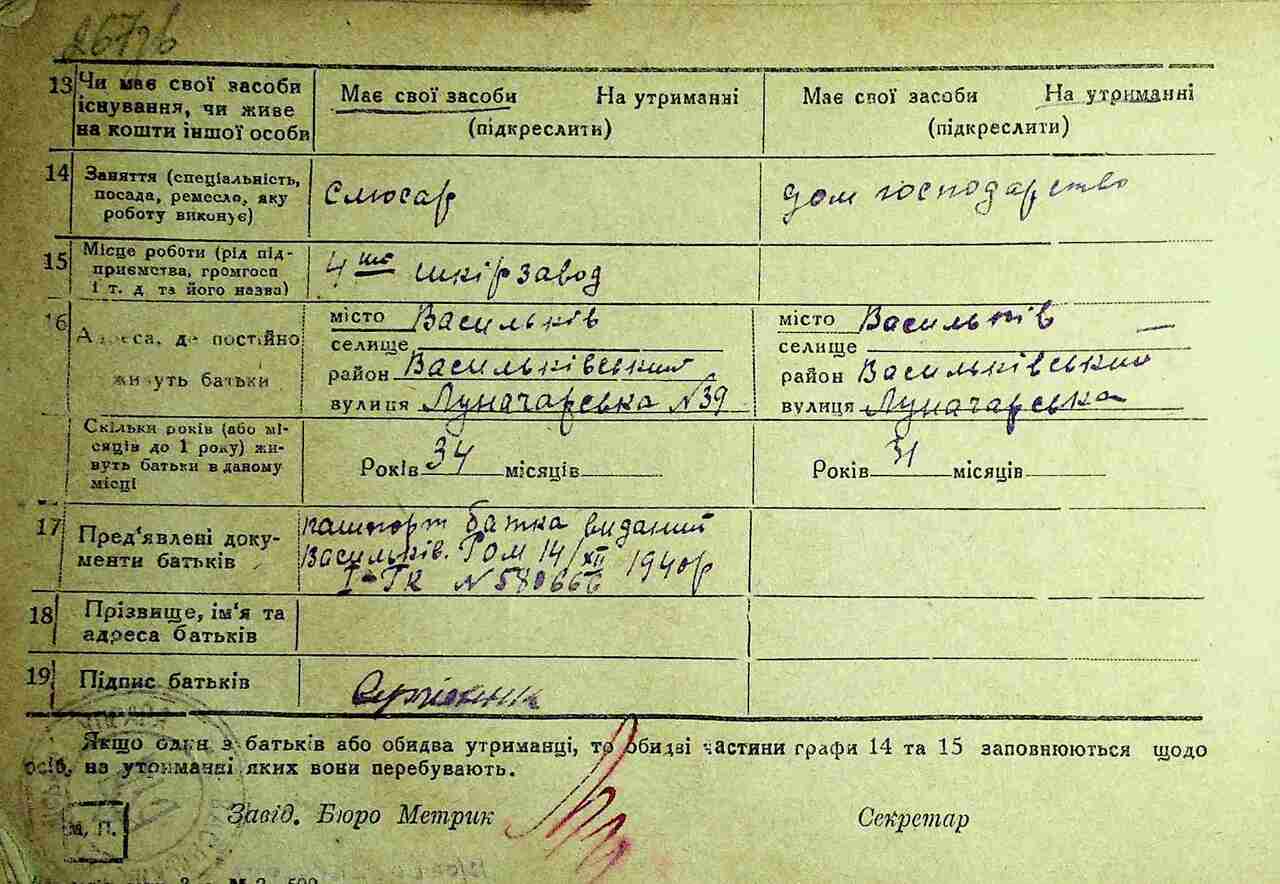 13 Чи має свої засоби
існування, чи живе
на кошти іншої особи
Має свої засоби На утриманні
(підкреслити)
Має свої засоби На утриманні
(підкреслити)
14 Заняття (спеціальність,
посада, ремесло, яку
роботу виконує)
Слюсар
дом господарство
15 Місце роботи (рід під-
приємства, громгосп
і т. д. та його назва)
4 шкірзавод
16 Адреса, де постійно
живуть батьки
місто Васильків
селище
район Васильківський
вулиця Луначарська №39
місто Васильків
селище
район Васильківський
вулиця Луначарська
Скільки років (або мі-
сяців до 1 року) жи-
вуть батьки в даному
місці
Років 34 місяців
Років 31 місяців
17 Пред'явлені доку-
менти батьків
пашпорт батка виданий
Васильків. РОМ 14/XII 1940р
І-ГК №580666
18 Прізвище, ім'я та
адреса батьків
19 Підпис батьків
Якщо один з батьків або обидва утриманці, то обидві частини графи 14 та 15 заповнюються щодо
осіб, на утриманні яких вони перебувають.
М. П.
Завід. Бюро Метрик
Секретар